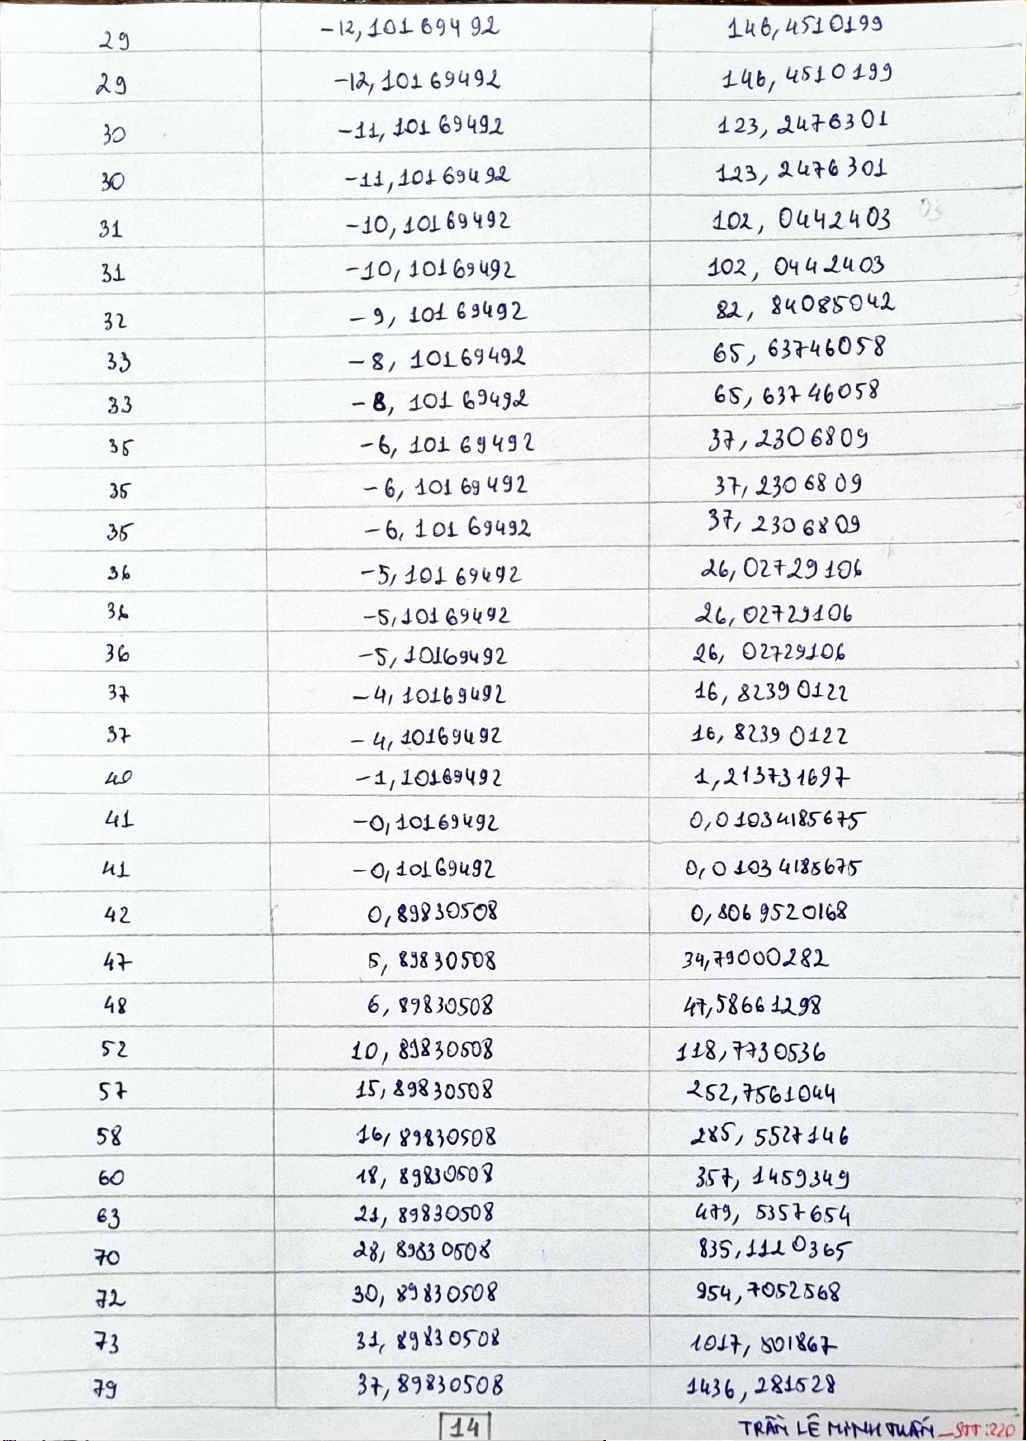 29 -12,10169492 146,4510199
29 -12,10169492 146,4510199
30 -11,10169492 123,2476301
30 -11,10169492 123,2476301
31 -10,10169492 102,0442403
31 -10,10169492 102,0442403
32 -9,10169492 82,84085042
33 -8,10169492 65,63746058
33 -8,10169492 65,63746058
35 -6,10169492 37,2306809
35 -6,10169492 37,2306809
35 -6,10169492 37,2306809
36 -5,10169492 26,02729106
36 -5,10169492 26,02729106
36 -5,10169492 26,02729106
37 -4,10169492 16,82390122
37 -4,10169492 16,82390122
40 -1,10169492 1,213731697
41 -0,10169492 0,01034185675
41 -0,10169492 0,01034185675
42 0,89830508 0,8069520168
47 5,89830508 34,79000282
48 6,89830508 47,58661298
52 10,89830508 118,7730536
57 15,89830508 252,7561044
58 16,89830508 285,5527146
60 18,89830508 357,1459349
63 21,89830508 479,5357654
70 28,89830508 835,1120365
72 30,89830508 954,7052568
73 31,89830508 1017,501867
79 37,89830508 1436,281528
14 TRẦN LÊ MINH TUẤN_STT:220